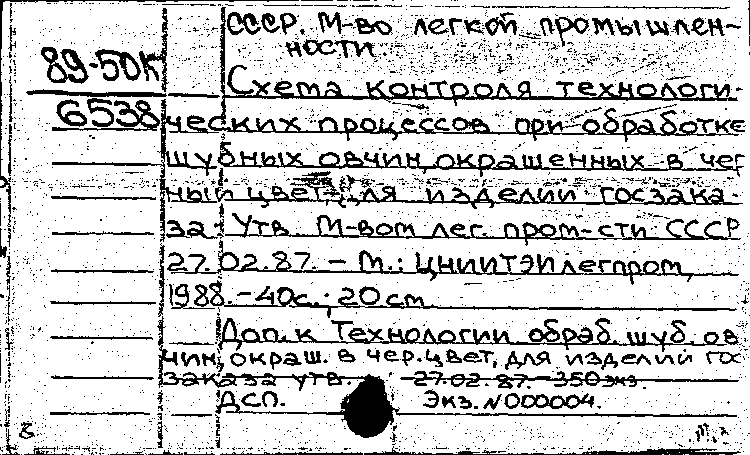 СССР. М-во легкой промышлен-
ности.
89-50К
Схема контроля технологи-
6538
ческих процессов при обработке
шубных овчин, окрашенных в чер
ный цвет, для изделий госзака-
за. Утв. М-вом лег. пром-сти СССР
27.02.87. - М.: ЦНИИТЭИлегпром,
1988. - 40с.; 20 см
Доп. к Технологии обраб. шуб. ов
чин, окраш. в чер. цвет, для изделий гос
заказа утв. 27.02.87. - 350 экз.
ДСП. Экз. N000004.